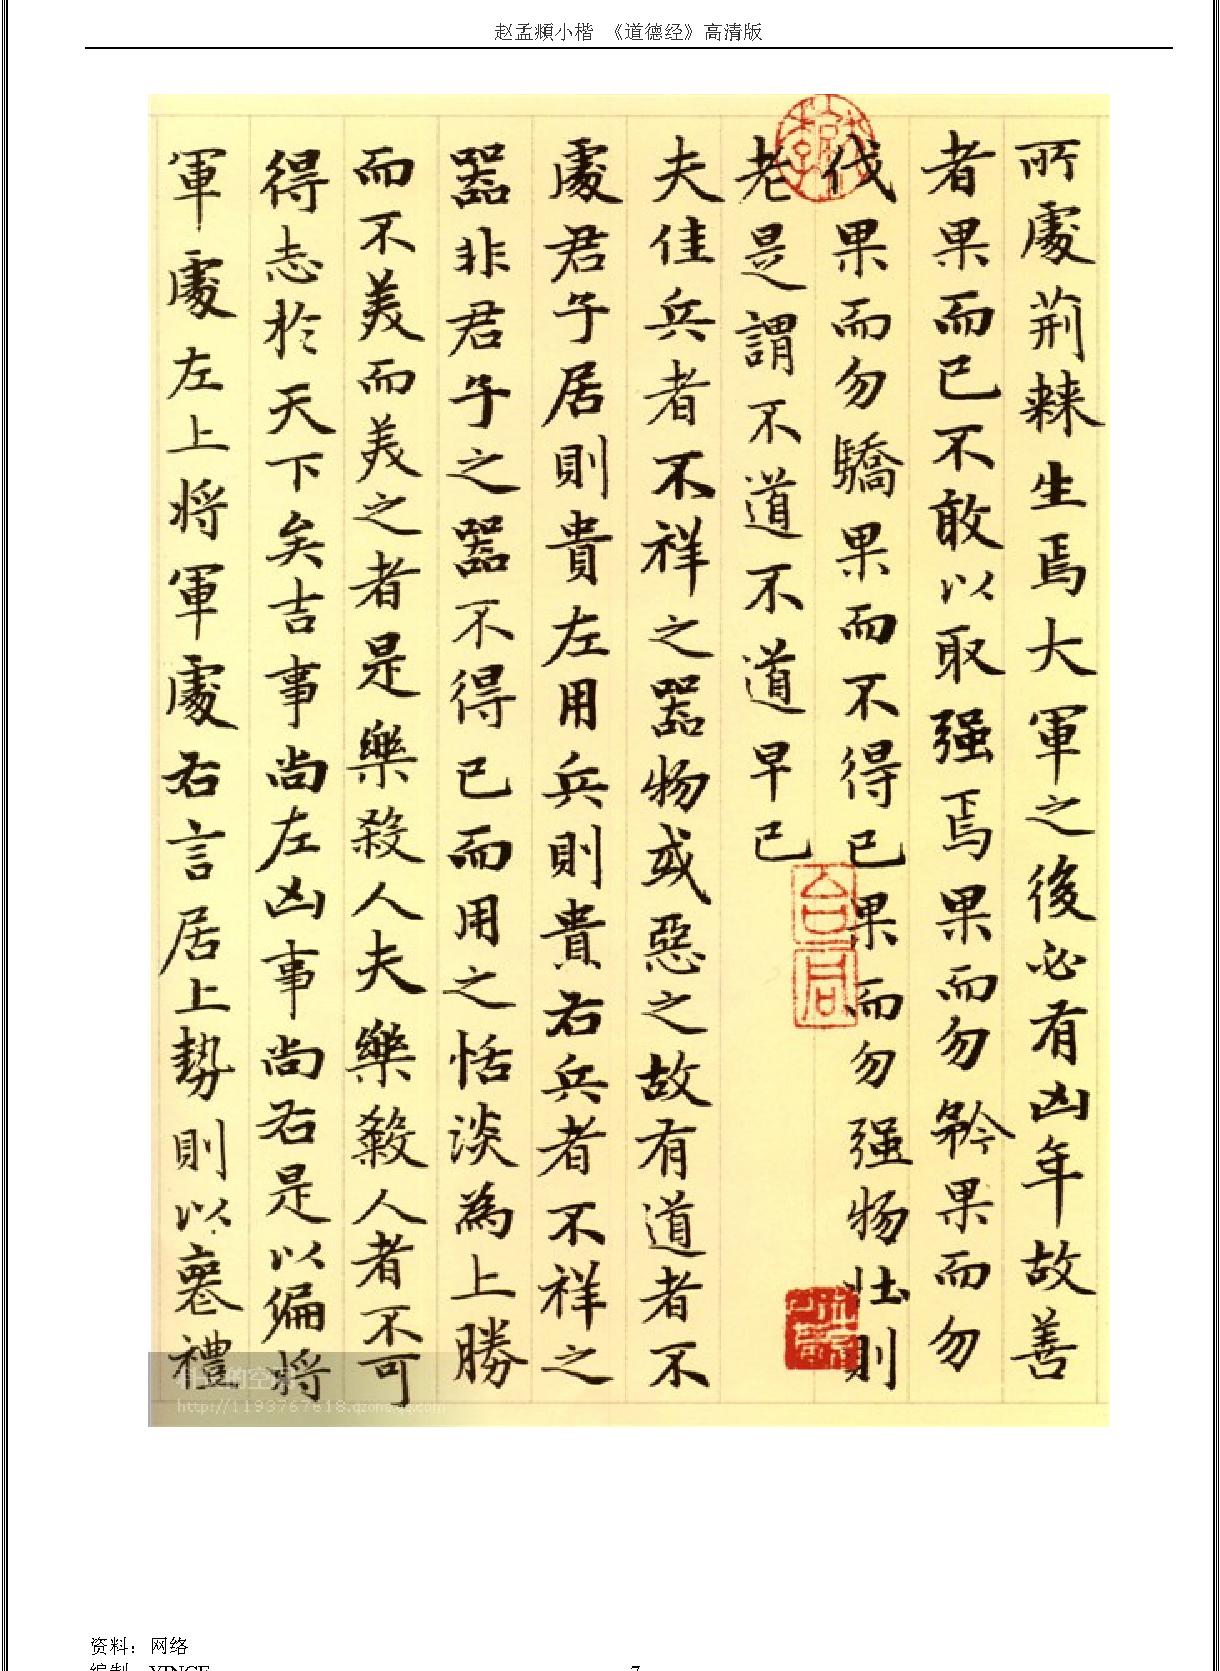 赵孟頫小楷 《道德经》高清版
所處荆棘生焉大軍之後必有凶年故善
者果而已不敢以取强焉果而勿矜果而勿
伐果而勿驕果而不得已果而勿强物壮則
老是謂不道不道早已
夫佳兵者不祥之器物或惡之故有道者不
處君子居則貴左用兵則貴右兵者不祥之
器非君子之器不得已而用之恬淡為上勝
而不美而美之者是樂殺人夫樂殺人者不可
得志於天下矣吉事尚左凶事尚右是以偏将
軍處左上将軍處右言居上勢則以喪禮
资料：网络
编制：YINCE
7